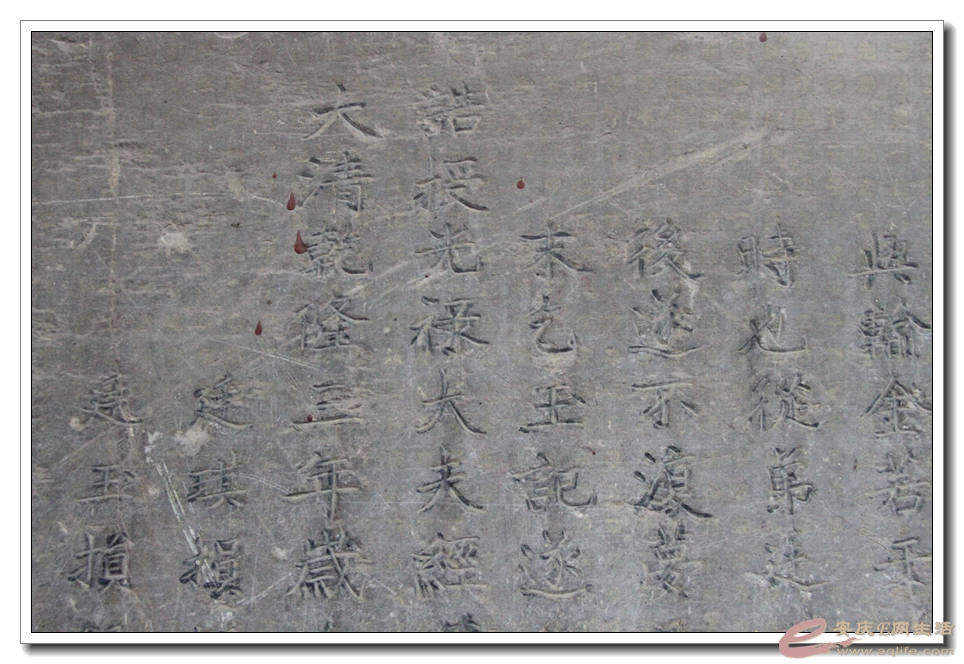 與輸金若干
時也從弟廷
後遂不復夢
末乞玉記遂
誥授光祿大夫經
大清乾隆三年歲
廷琪捐
廷玉捐
安庆E网生活
www.aqlife.com